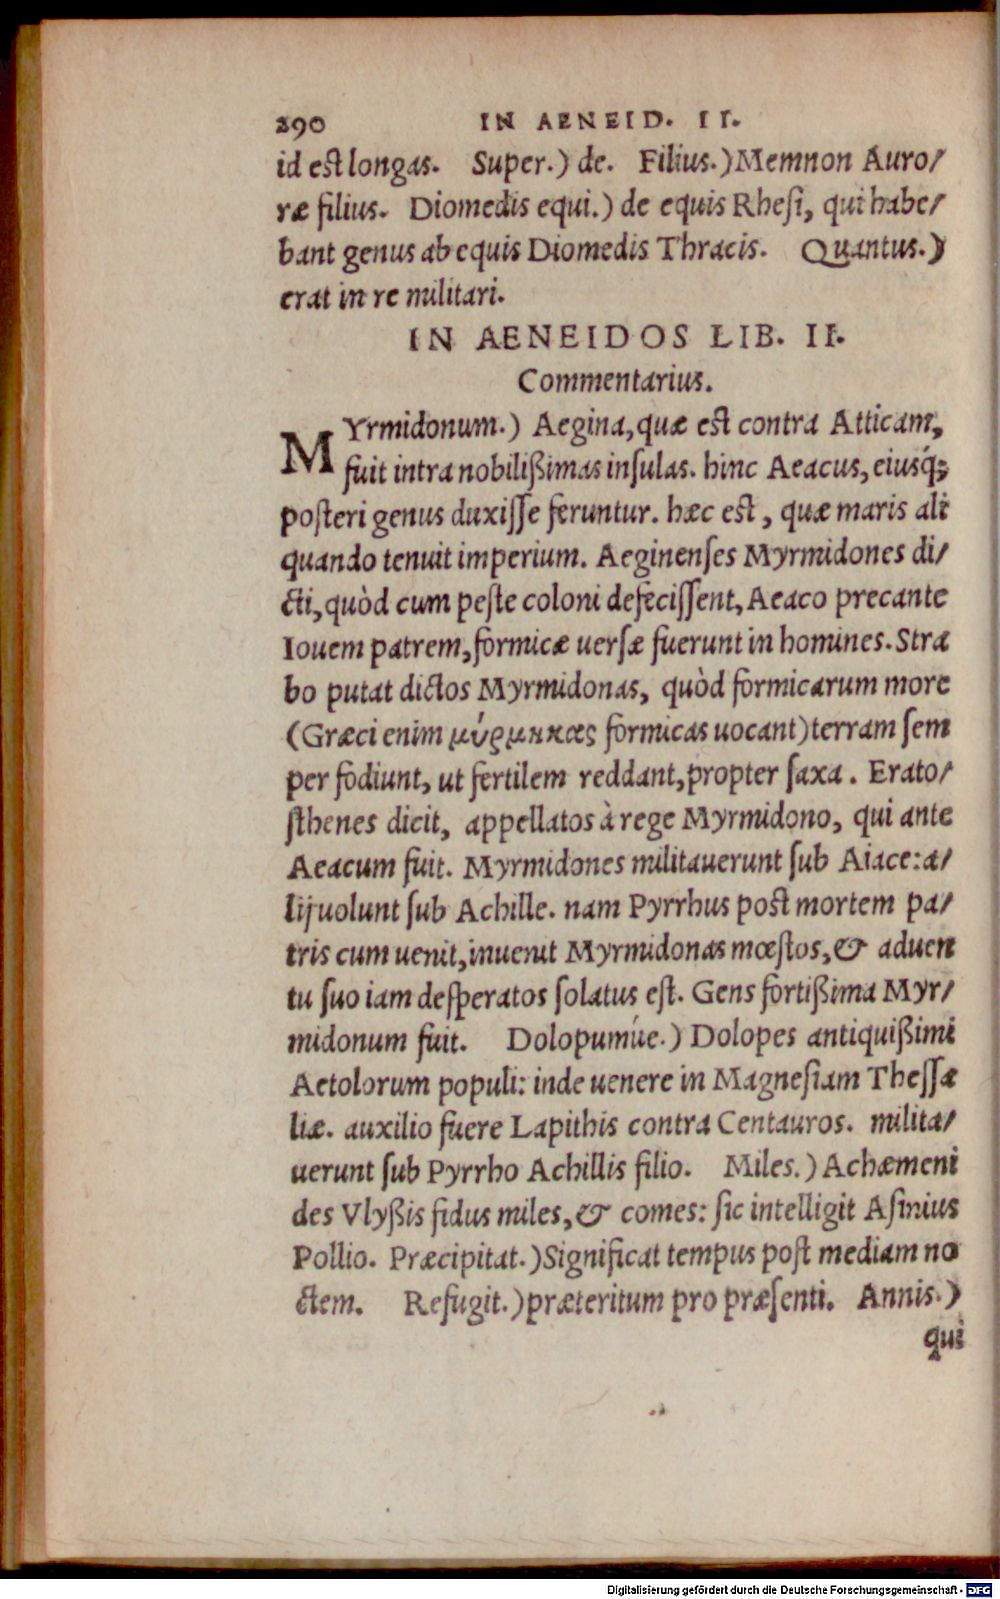 290 IN AENEID. II.
id est longas. Super.) de. Filius.) Memnon Auro/
ræ filius. Diomedis equi.) de equis Rhesi, qui habe/
bant genus ab equis Diomedis Thracis. Quantus.)
erat in re militari.
IN AENEIDOS LIB. II.
Commentarius.
MYrmidonum.) Aegina, quæ est contra Atticam,
fuit intra nobilißimas insulas. hinc Aeacus, eiusq́;
posteri genus duxisse feruntur. hæc est, quæ maris ali
quando tenuit imperium. Aeginenses Myrmidones di/
cti, quòd cum peste coloni defecissent, Aeaco precante
Iouem patrem, formicæ uersæ fuerunt in homines. Stra
bo putat dictos Myrmidonas, quòd formicarum more
(Græci enim μύρμηκας formicas uocant) terram sem
per fodiunt, ut fertilem reddant, propter saxa. Erato/
sthenes dicit, appellatos à rege Myrmidono, qui ante
Aeacum fuit. Myrmidones militauerunt sub Aiace: a/
lij uolunt sub Achille. nam Pyrrhus post mortem pa/
tris cum uenit, inuenit Myrmidonas mœstos, & aduen
tu suo iam desperatos solatus est. Gens fortißima Myr/
midonum fuit. Dolopumúe.) Dolopes antiquißimi
Aetolorum populi: inde uenere in Magnesiam Thessa
liæ. auxilio fuere Lapithis contra Centauros. milita/
uerunt sub Pyrrho Achillis filio. Miles.) Achæmeni
des Vlyßis fidus miles, & comes: sic intelligit Asinius
Pollio. Præcipitat.) Significat tempus post mediam no
ctem. Refugit.) præteritum pro præsenti. Annis.)
qui
Digitalisierung gefördert durch die Deutsche Forschungsgemeinschaft - DFG